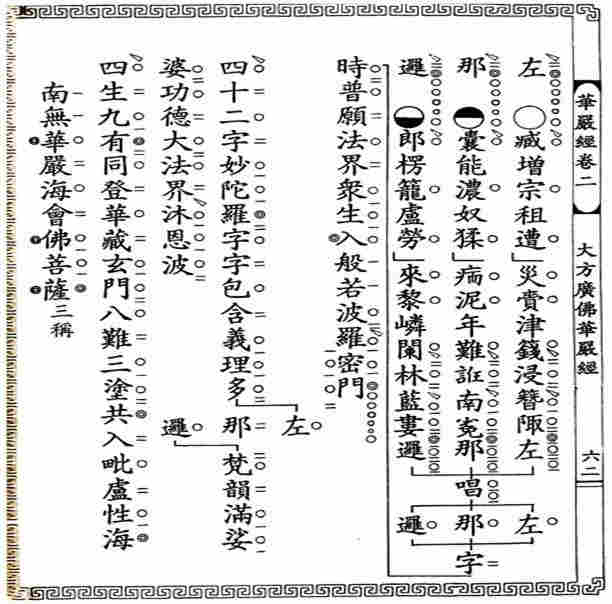 華嚴經卷二 大方廣佛華嚴經 六二
左 臧增宗祖遭 災賫津籛浸簪陬左
那 囊能濃奴猱 泥年難南㝹那
邏 郎楞籠盧勞 來黎嶙闌林藍婁邏
唱
左
那
邏
字
時普願法界眾生入般若波羅密門
四十二字妙陀羅字字包含義理多
左
那
邏
梵韻滿娑
婆功德大法界沐恩波
四生九有同登華藏玄門八難三塗共入毗盧性海
南無華嚴海會佛菩薩三稱